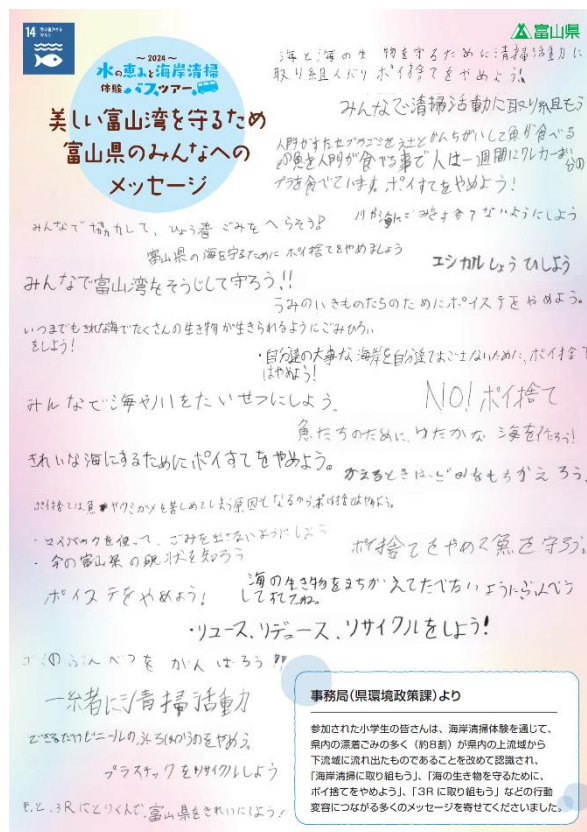 14 海の豊かさを守ろう
富山県
～2024～
水の恵みと海岸清掃
体験バスツアー
美しい富山湾を守るため
富山県のみんなへの
メッセージ
海と海の生き物を守るために清掃活動に
取り組んだり ポイ捨てをやめよう!
みんなで清掃活動に取り組もう
人間がすたプラゴミをえさとかんちがいして魚が食べる
の魚を人間が食べる事で人は一週間にクレカ一まい分の
プラを食べています。ポイすてをやめよう!
みんなで協力して、ひょう着ごみをへらそう!
川が海にごみすててないようにしよう
富山県の海を守るためにポイ捨てをやめましょう
エシカルしょうひしよう
みんなで富山湾をそうじして守ろう!!
うみのいきものたちのためにポイステをやめよう。
いつまでもきれいな海でたくさんの生き物が生きられるようにごみひろい
をしよう!
・自分達の大事な海岸を自分達でよごさないために、ポイ捨て
はやめよう!
みんなで海や川をたいせつにしよう。
NO! ポイ捨て
魚たちのために、ゆたかな海を作ろう!
きれいな海にするためにポイすてをやめよう。
かえるときは、ごみをもちかえろう。
ポイ捨ては鳥やウミガメを苦しめてしまう原因となるからポイ捨てはやめよう。
・マイバックを使って、ごみを出さないようにしよう
・今の富山県の現状を知ろう
ポイ捨てをやめて魚を守ろう。
ポイステをやめよう!
海の生き物をまちがえてたべないようにぶんべつ
してすててね。
・リユース、リデュース、リサイクルをしよう!
ゴミのぶんべつをがんばろう!!
一緒に清掃活動
できるだけビニールのふくろはつかうのをやめよう。
プラスチックをリサイクルしよう
もっと、3Rにとりくんで、富山県をきれいにしよう!
事務局(県環境政策課)より
参加された小学生の皆さんは、海岸清掃体験を通じて、
県内の漂着ごみの多く(約8割)が県内の上流域から
下流域に流れ出たものであることを改めて認識され、
「海岸清掃に取り組もう」、「海の生き物を守るために、
ポイ捨てをやめよう」、「3Rに取り組もう」などの行動
変容につながる多くのメッセージを寄せてくださいました。